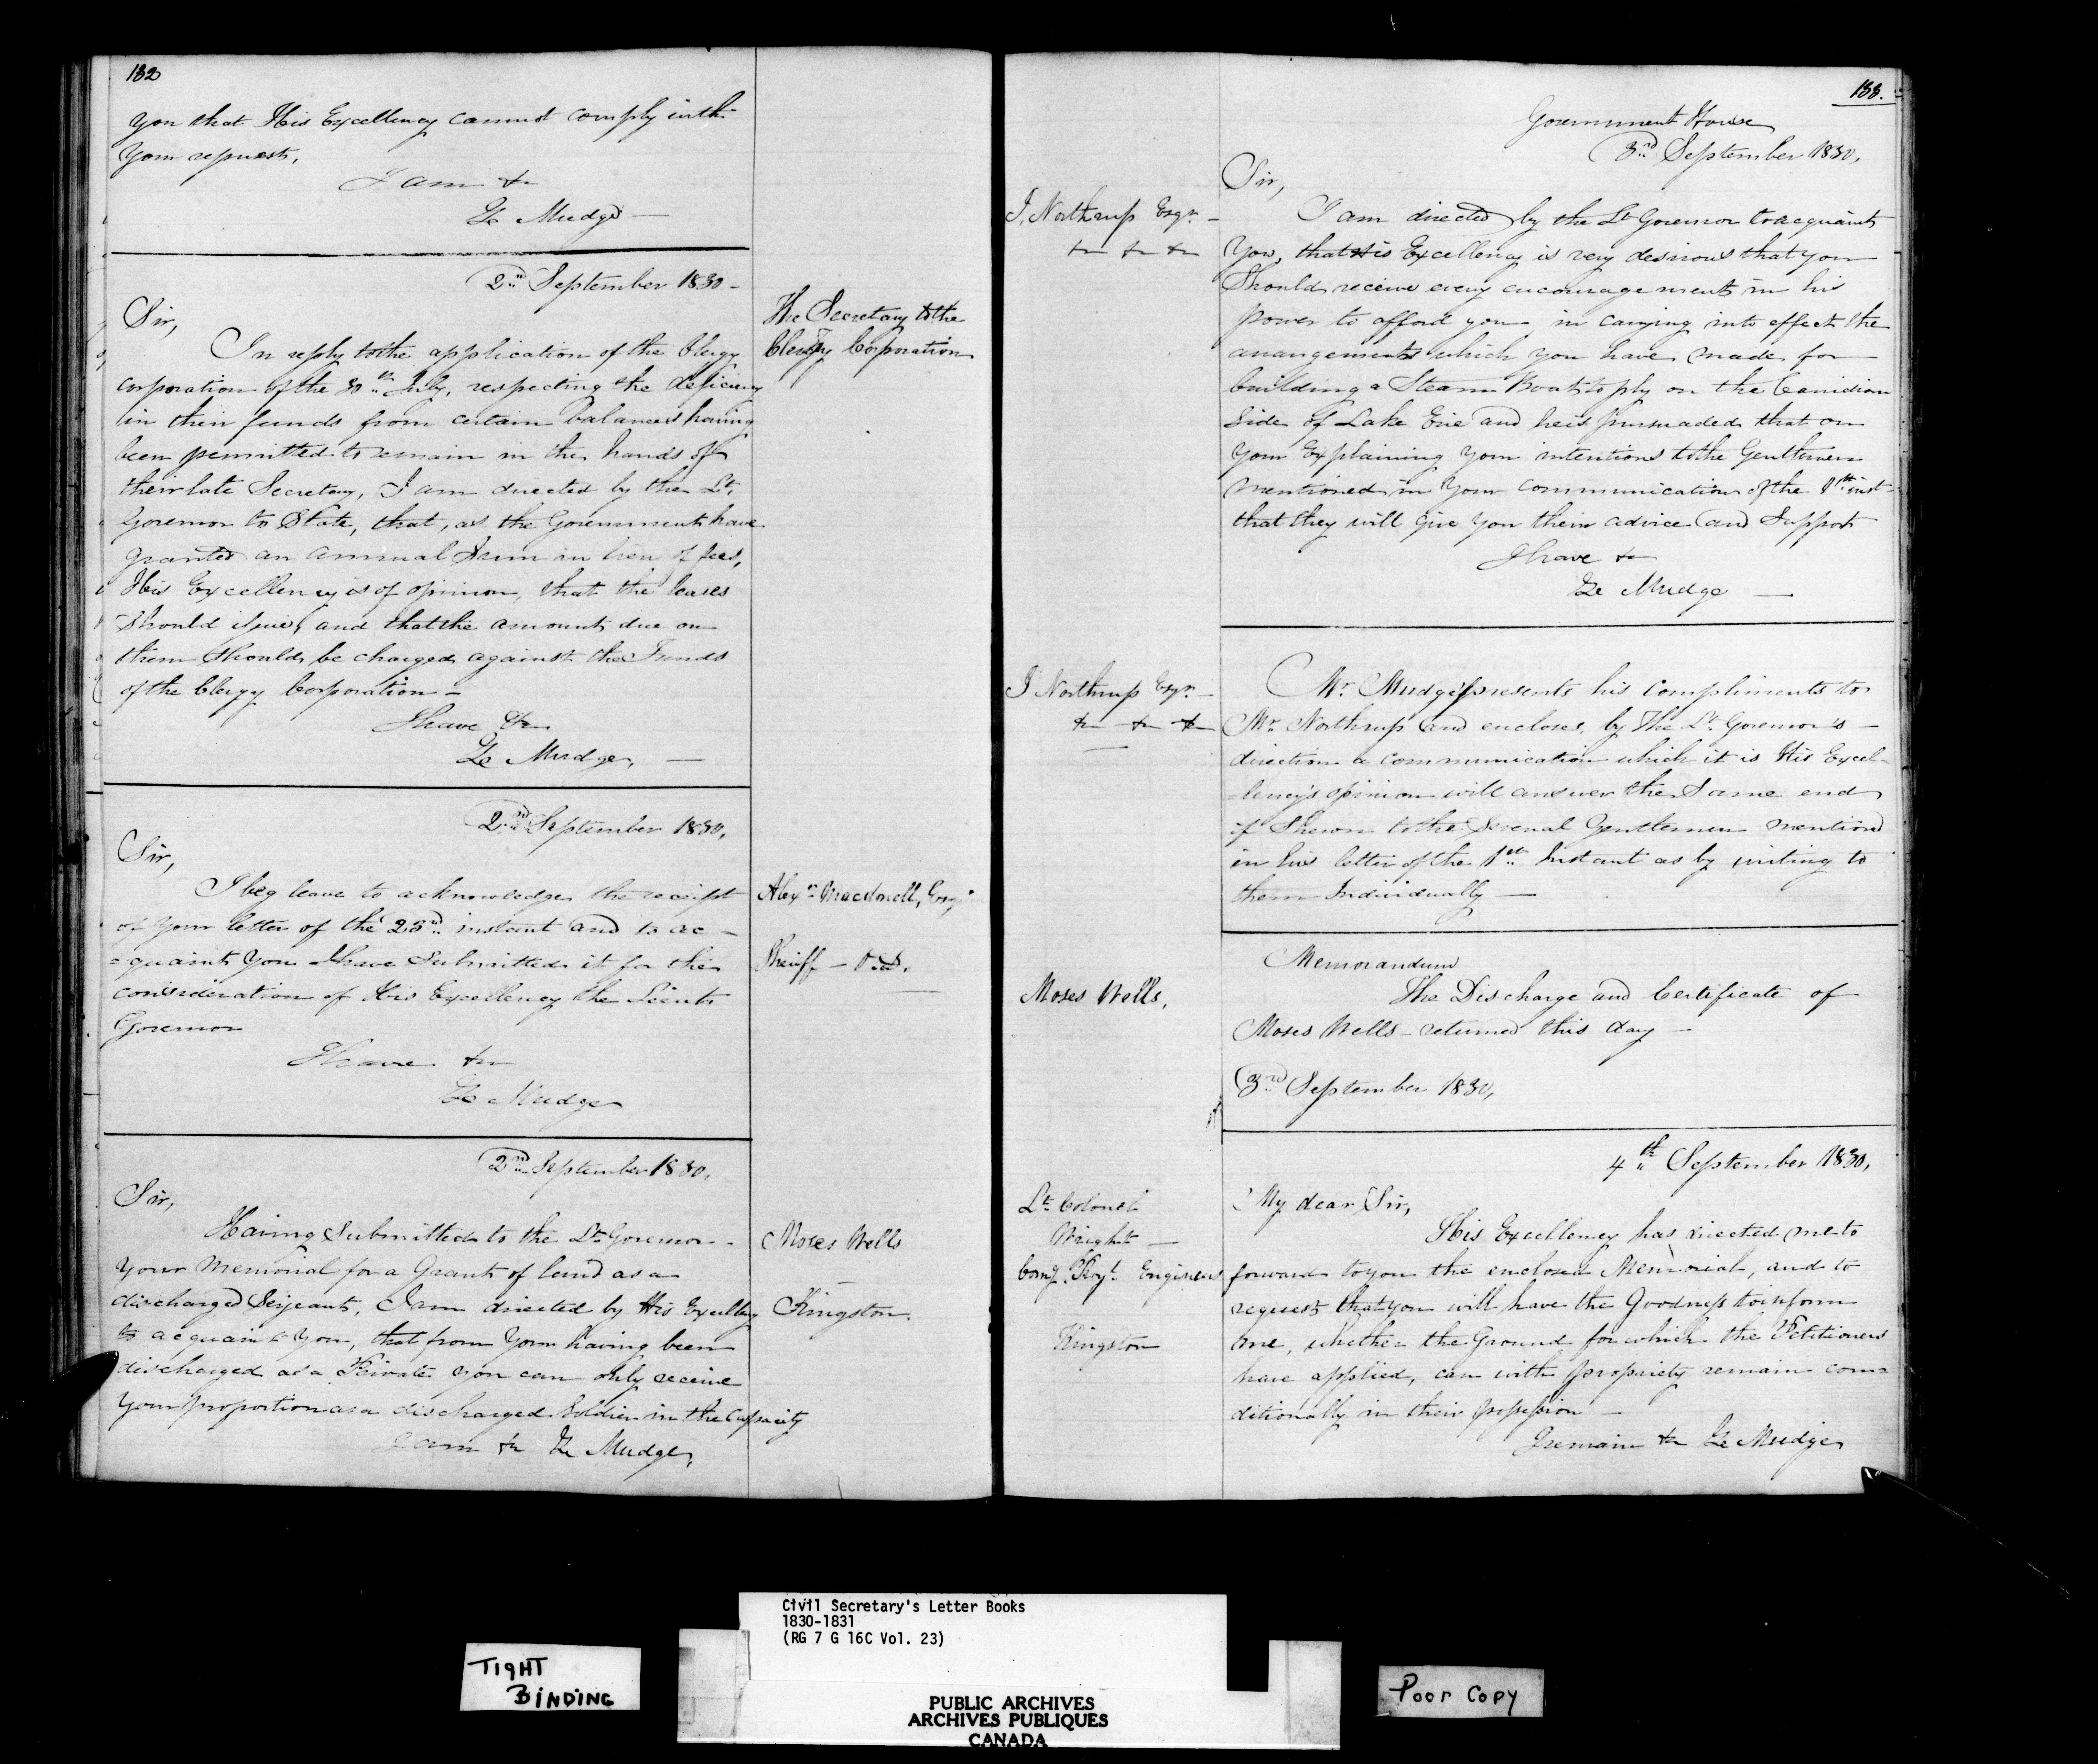 132
you that His Excellency cannot comply with
your request,
I am &c
Ze Mudge
2nd September 1830
The Secretary to the
Clergy Corporation
Sir,
In reply to the application of the Clergy
Corporation of the July, respecting the deficiency
in their funds from certain balances having
been permitted to remain in the hands of
their late Secretary, I am directed by the Lt.
Governor to State, that, as the Government have
granted an annual Sum in lieu of fees,
His Excellency is of opinion, that the leases
Should issue, and that the amount due on
them Should be charged against the Funds
of the Clergy Corporation
I have &c
Ze Mudge,
2nd September 1830,
Sir,
Alexr Macdonell, Esqr
Sheriff
I beg leave to acknowledge the receipt
of your letter of the 23rd instant and to ac-
=quaint You I have Submitted it for the
consideration of His Excellency the Lieut
Governor
I have &c
Ze Mudge
2nd September 1830,
Sir,
Having Submitted to the Lt Governor
Moses Wells
Your Memorial for a Grant of land as a
discharged Serjeant, I am directed by His Excellency
Kingston
to acquaint You, that from Your having been
discharged as a Private you can only receive
Your proportion as a discharged Soldier in the Capacity
I am &c Ze Mudge,
133.
Government House
3rd September 1830,
Sir,
I. Northrup Esqr
&c &c &c
I am directed by the Lt Governor to acquaint
You, that His Excellency is very desirous that you
Should receive every encouragement in his
power to afford you in carrying into effect the
arrangements which you have made for
building a Steam Boat to ply on the Canidian
Side of Lake Erie and he is pursuaded that on
Your Explaining Your intentions to the Gentlemen
mentioned in Your Communication of the 1st inst
that they will give You their advice and Support
I have &c
Ze Mudge
I Northrup Esqr
&c &c &c
Mr. Mudge presents his compliments to
Mr Northrup and encloses, by the Lt Governor's
direction a communication which it is His Excel-
-lency's opinion will answer the Same end
if Shewn to the Several Gentlemen mentioned
in his letter of the 1st Instant as by writing to
them Individually
Memorandum
Moses Wells,
The Discharge and Certificate of
Moses Wells returned this day
3rd September 1830,
4th September 1830,
Lt Colonel
Wright
Comg Royl Engineers
Kingston
My dear Sir,
His Excellency has directed me to
forward to you the enclosed Memorial, and to
request that you will have the Goodness to inform
me, whether the Ground for which the Petitioners
have applied, can with propriety remain con=
ditionally in their possession
I remain &c Ze Mudge
Civil Secretary's Letter Books
1830-1831
(RG 7 G 16C Vol. 23)
TIGHT
BINDING
PUBLIC ARCHIVES
ARCHIVES PUBLIQUES
CANADA
Poor Copy